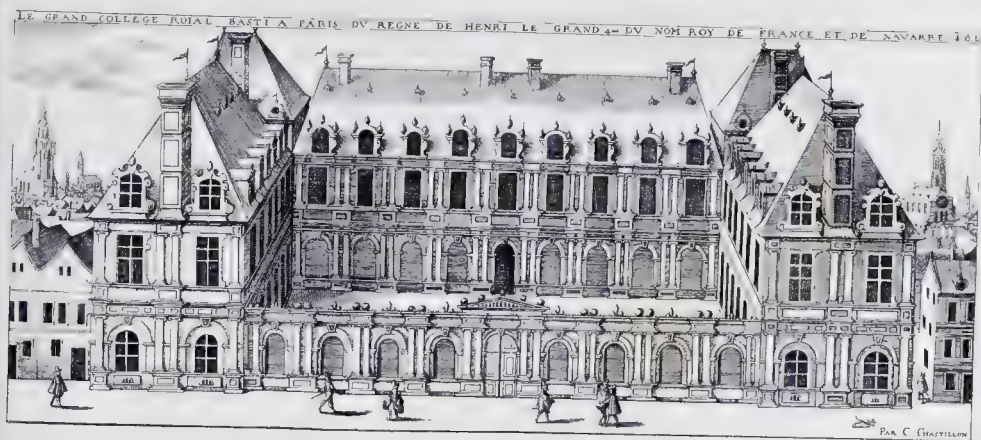 LE GRAND COLLEGE ROIAL BASTI A PARIS DV REGNE DE HENRI LE GRAND 4e DV NOM ROY DE FRANCE ET DE NAVARRE
PAR C CHASTILLON